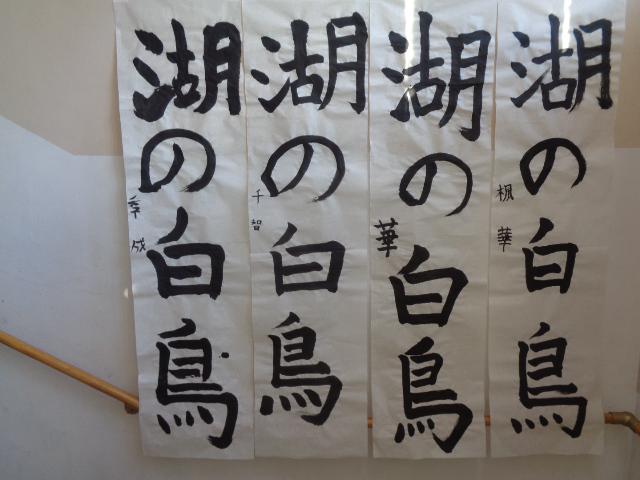 湖の白鳥
楓華
湖の白鳥
華
湖の白鳥
千智
湖の白鳥